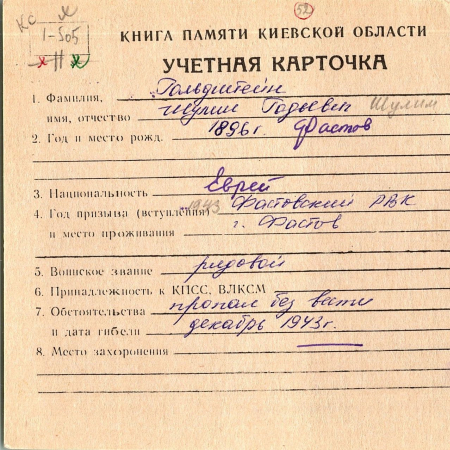 КС Х
52
1-505
х Н х
КНИГА ПАМЯТИ КИЕВСКОЙ ОБЛАСТИ
УЧЕТНАЯ КАРТОЧКА
1. Фамилия, Гольдштейн
имя, отчество Шулил Гадьевич Шулим
2. Год и место рожд. 1896 г. Фастов
3. Национальность Еврей
4. Год призыва (вступления) 1943 Фастовский РВК
и место проживания г. Фастов
5. Воинское звание рядовой
6. Принадлежность к КПСС, ВЛКСМ
7. Обстоятельства пропал без вести
и дата гибели декабрь 1943г.
8. Место захоронения